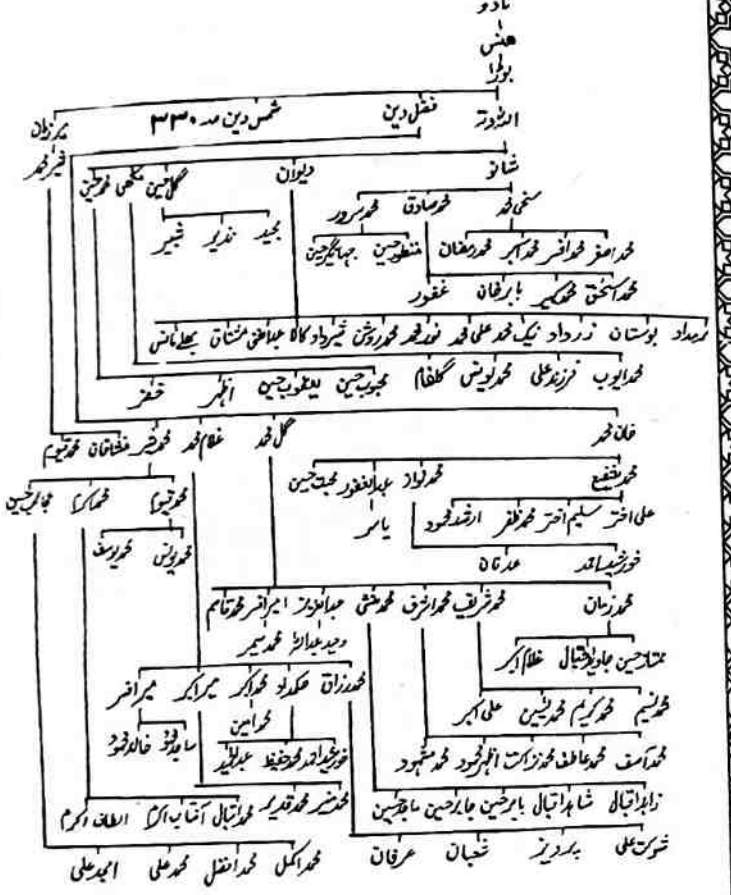 نادو
ھنس
بوٹا
اللہ دتہ فضل دین شمس دین صد ۳۳۰ میر زمان
شانو دیوان گل حسین مکھی محمد حسین فقیر محمد
سخی محمد محمد صادق محمد سرور مجید نذیر شبیر
محمد اصغر محمد افسر محمد اکبر محمد رمضان منظور حسین جہانگیر حسین
محمد اسحٰق محمد کبیر بابر خان غفور
نرمداد بوستان زرداد نیک محمد علی محمد نور محمد محمد روشن شیرداد کاکا عبدالغنی مشتاق
محمد ایوب فرزند علی محمد یونس گلفام محبوب حسین یعقوب حسین اظہر خضر
خان محمد گل محمد غلام محمد محمد شیر محمد قیوم
محمد شفیع محمد نواز عبدالغفور محبت حسین محمد قیوم محمد اکرم
علی اختر سلیم اختر محمد ظفر ارشد محمود یاسر محمد یونس محمد یوسف
خورشید احمد عدنان
محمد زمان محمد شریف محمد اشرف محمد منشی عبدالعزیز امیر افسر محمد قاسم
ممتاز حسین جاوید اقبال غلام اکبر وحید عبداللہ محمد سمیر
محمد رزاق حکمداد محمد اکبر میر اکبر میر افسر
محمد نسیم محمد کریم محمد یٰسین علی اکبر محمد امین ساجد محمود خالد محمود
محمد آصف محمد عاطف محمد نزاکت اظہر محمود محمد مقصود خورشید احمد محمد حفیظ
زاہد اقبال شاہد اقبال بابر حسین جابر حسین ماجد حسین محمد منیر محمد قدیر محمد اقبال آفتاب اکرم الطاف اکرم
شوکت علی پرویز شعبان عرفان محمد اکمل محمد افضل محمد علی امجد علی